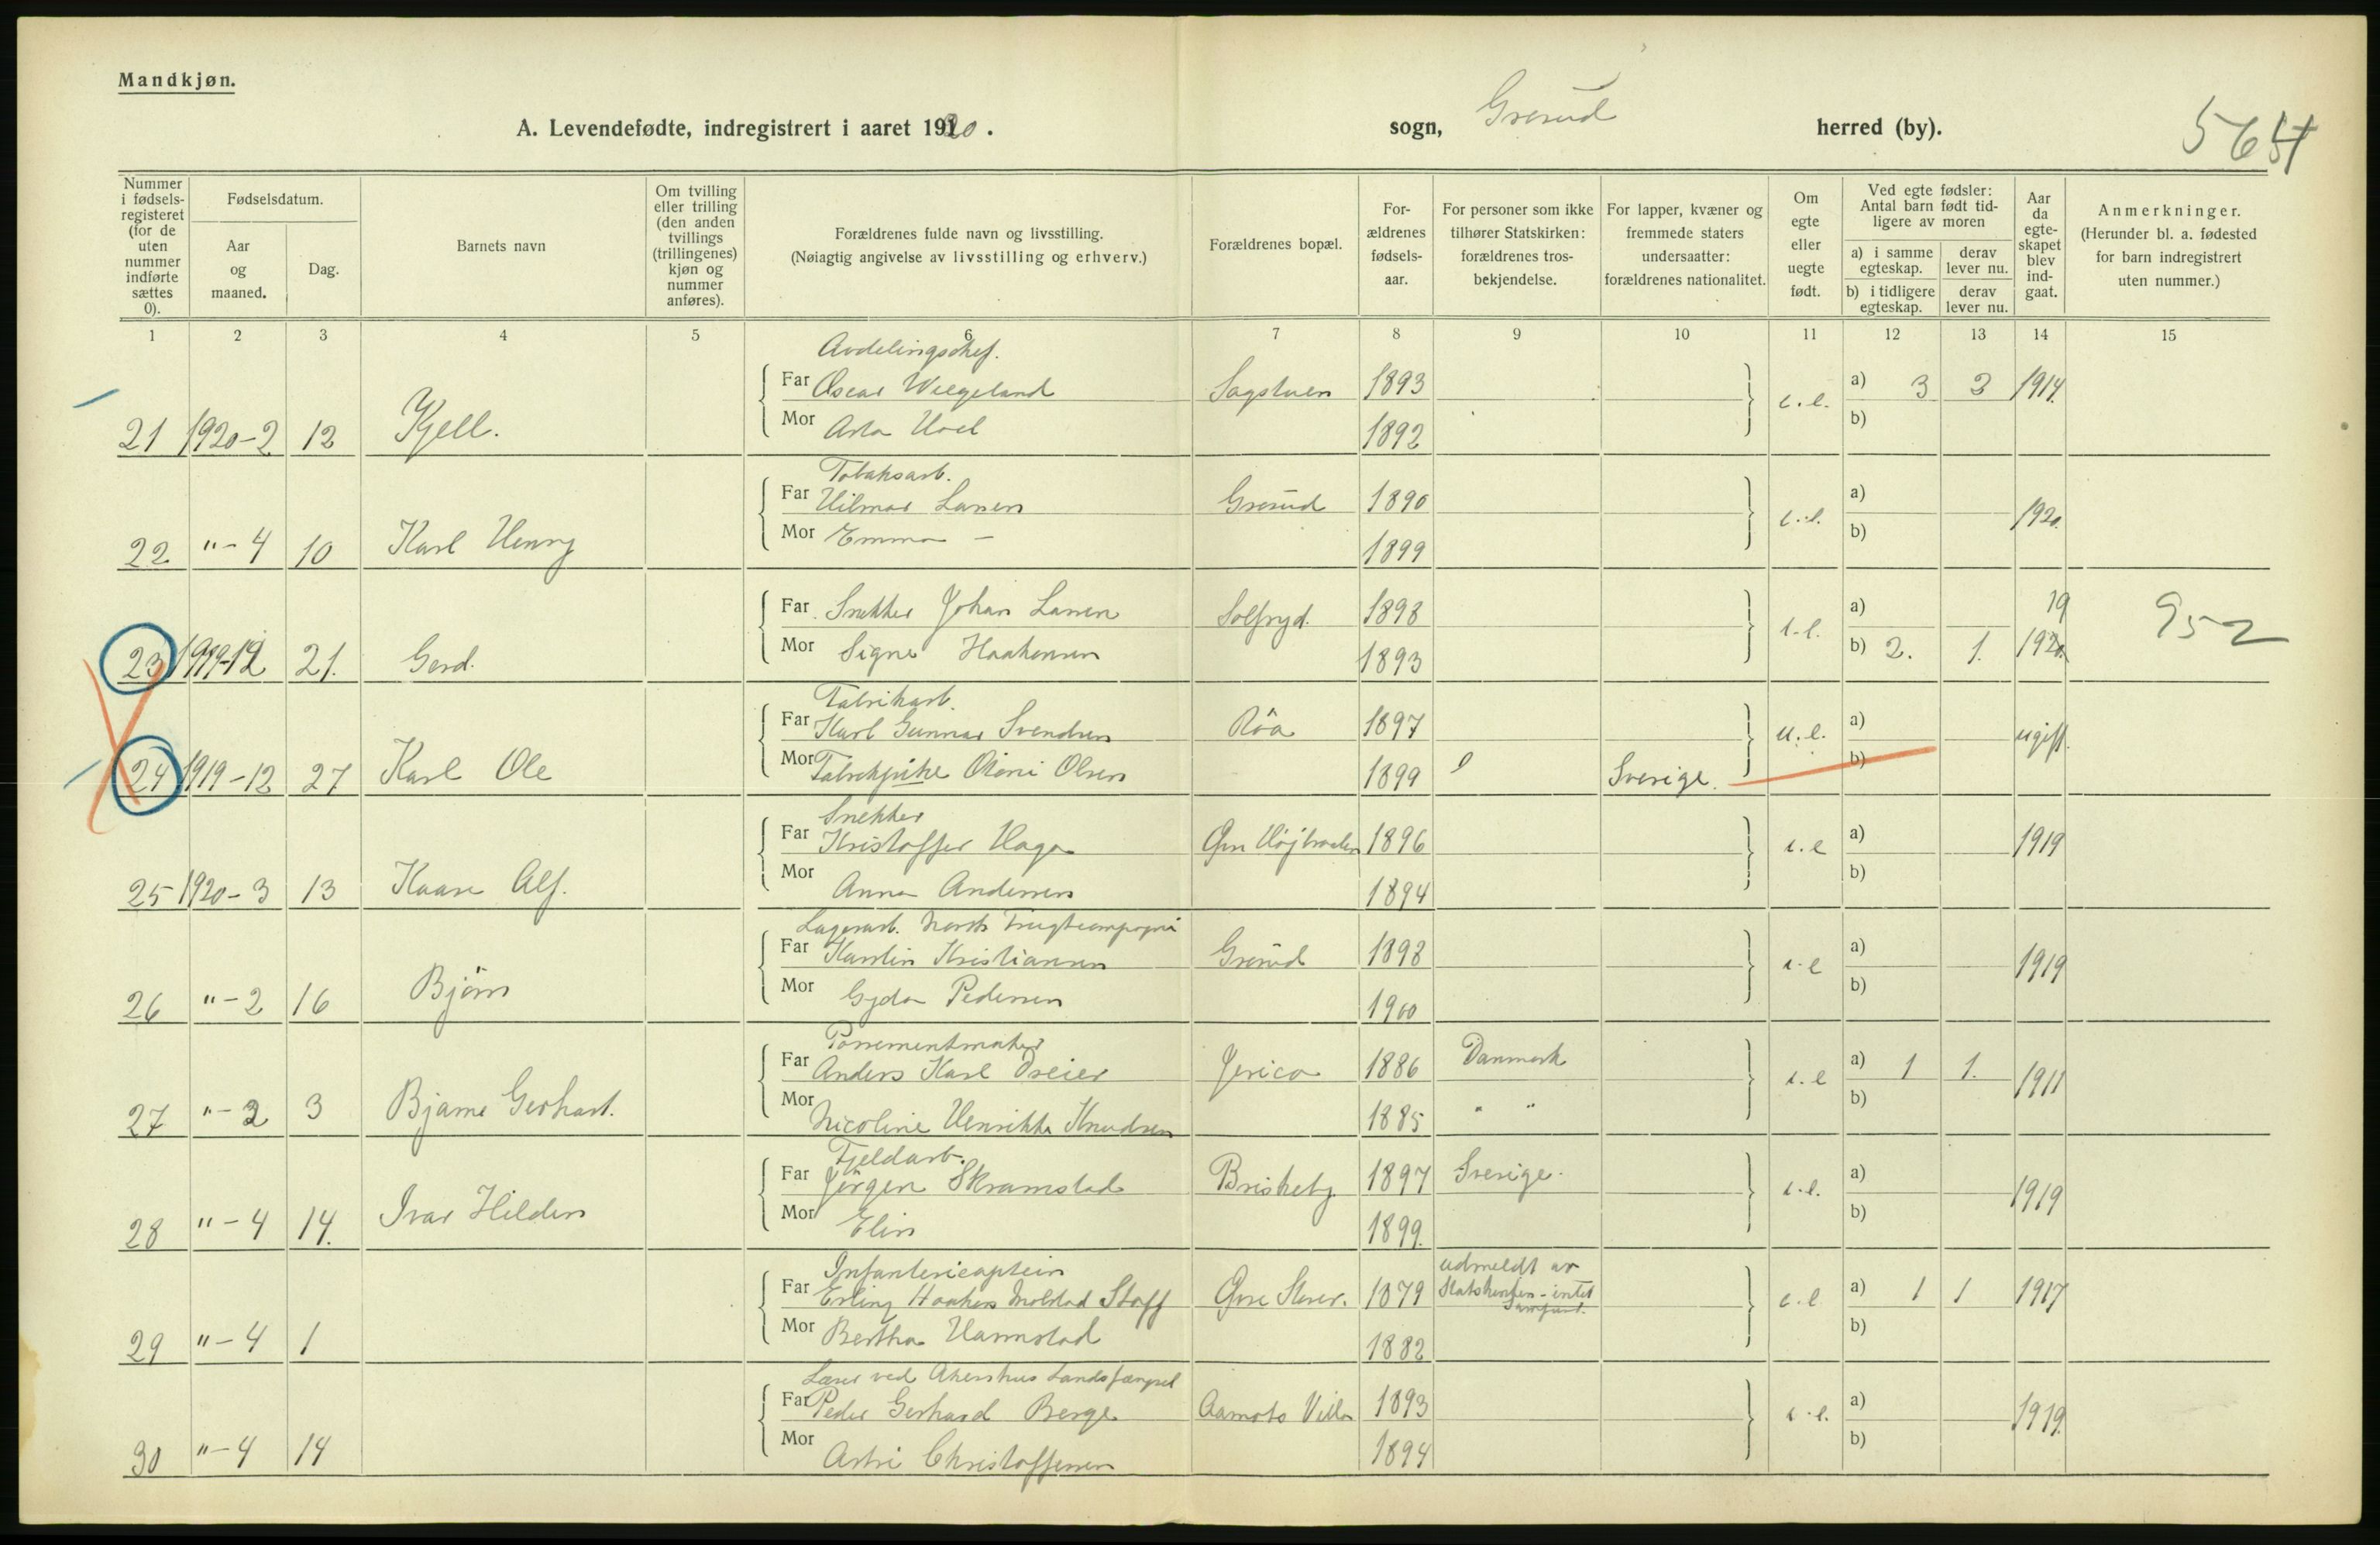 Mandkjøn.
A. Levendefødte, indregistrert i aaret 1920.
sogn, Grorud herred (by).
564
Nummer i fødselsregisteret (for de uten nummer indførte sættes 0).
Fødselsdatum.
Aar og maaned.
Dag.
Barnets navn
Om tvilling eller trilling (den anden tvillings (trillingenes) kjøn og nummer anføres).
Forældrenes fulde navn og livsstilling.
(Nøiagtig angivelse av livsstilling og erhverv.)
Forældrenes bopæl.
Forældrenes fødselsaar.
For personer som ikke tilhører Statskirken: forældrenes trosbekjendelse.
For lapper, kvæner og fremmede staters undersaatter: forældrenes nationalitet.
Om egte eller uegte født.
Ved egte fødsler: Antal barn født tidligere av moren
a) i samme egteskap.
derav lever nu.
b) i tidligere egteskap.
derav lever nu.
Aar da egteskapet blev indgaat.
Anmerkninger.
(Herunder bl. a. fødested for barn indregistrert uten nummer.)
1 2 3 4 5 6 7 8 9 10 11 12 13 14 15
Avdelingschef.
Far Oscar Wegeland Sagstuen 1893 e.e. a) 3 3 1914
21 1920-2 12 Kjell. Mor Asta 1892 b)
Tobaksarb.
Far Hilmar Larsen Grorud 1890 e.e. a) 1920
22 "-4 10 Karl Henry Mor Emma - 1899 b)
Far Snekker Johan Larsen Solfryd. 1898 e.e. a) 19
23 1919-12 21. Gerd. Mor Signe Haakensen 1893 b) 2. 1. 1920 952
Fabrikarb.
Far Karl Gunnar Svendsen Röa 1897 u.e. a) ugift.
24 1919-12 27 Karl Ole Mor Fabrikpike Olsen 1899 Sverige. b)
Snekker
Far Kristoffer Haga 1896 e.e a) 1919
25 1920-3 13 Kaare Alf. Mor Anna Andersen 1894 b)
Lagerarb. Norsk Frugtcompagni
Far Karstin Kristiansen Grorud 1898 e.e a) 1919
26 "-2 16 Björn Mor Gyda Pedersen 1900 b)
Possementmaker
Far Anders Karl Dreier Jerico 1886 Danmark e.e a) 1 1. 1911
27 "-2 3 Bjarne Gerhart. Mor Nicoline Henrikke Knudsen 1885 " " b)
Fjeldarb.
Far Jörgen Skramstad Briskeby 1897 Sverige. e.e. a) 1919
28 "-4 14. Ivar Hilden Mor Elin 1899. b)
Infantericaptein
Far Erling Haaken Molstad Staff 1879 udmeldt av Statskirken - intet Samfund. e.e a) 1 1 1917
29 "-4 1 Mor Bertha Harmstad 1882 b)
Lærer ved Akershus Landsfængsel
Far Peder Gerhard Berge Aamots Villa 1893 e.e. a) 1919.
30 "-4 14 Mor Astri Christoffersen 1894 b)